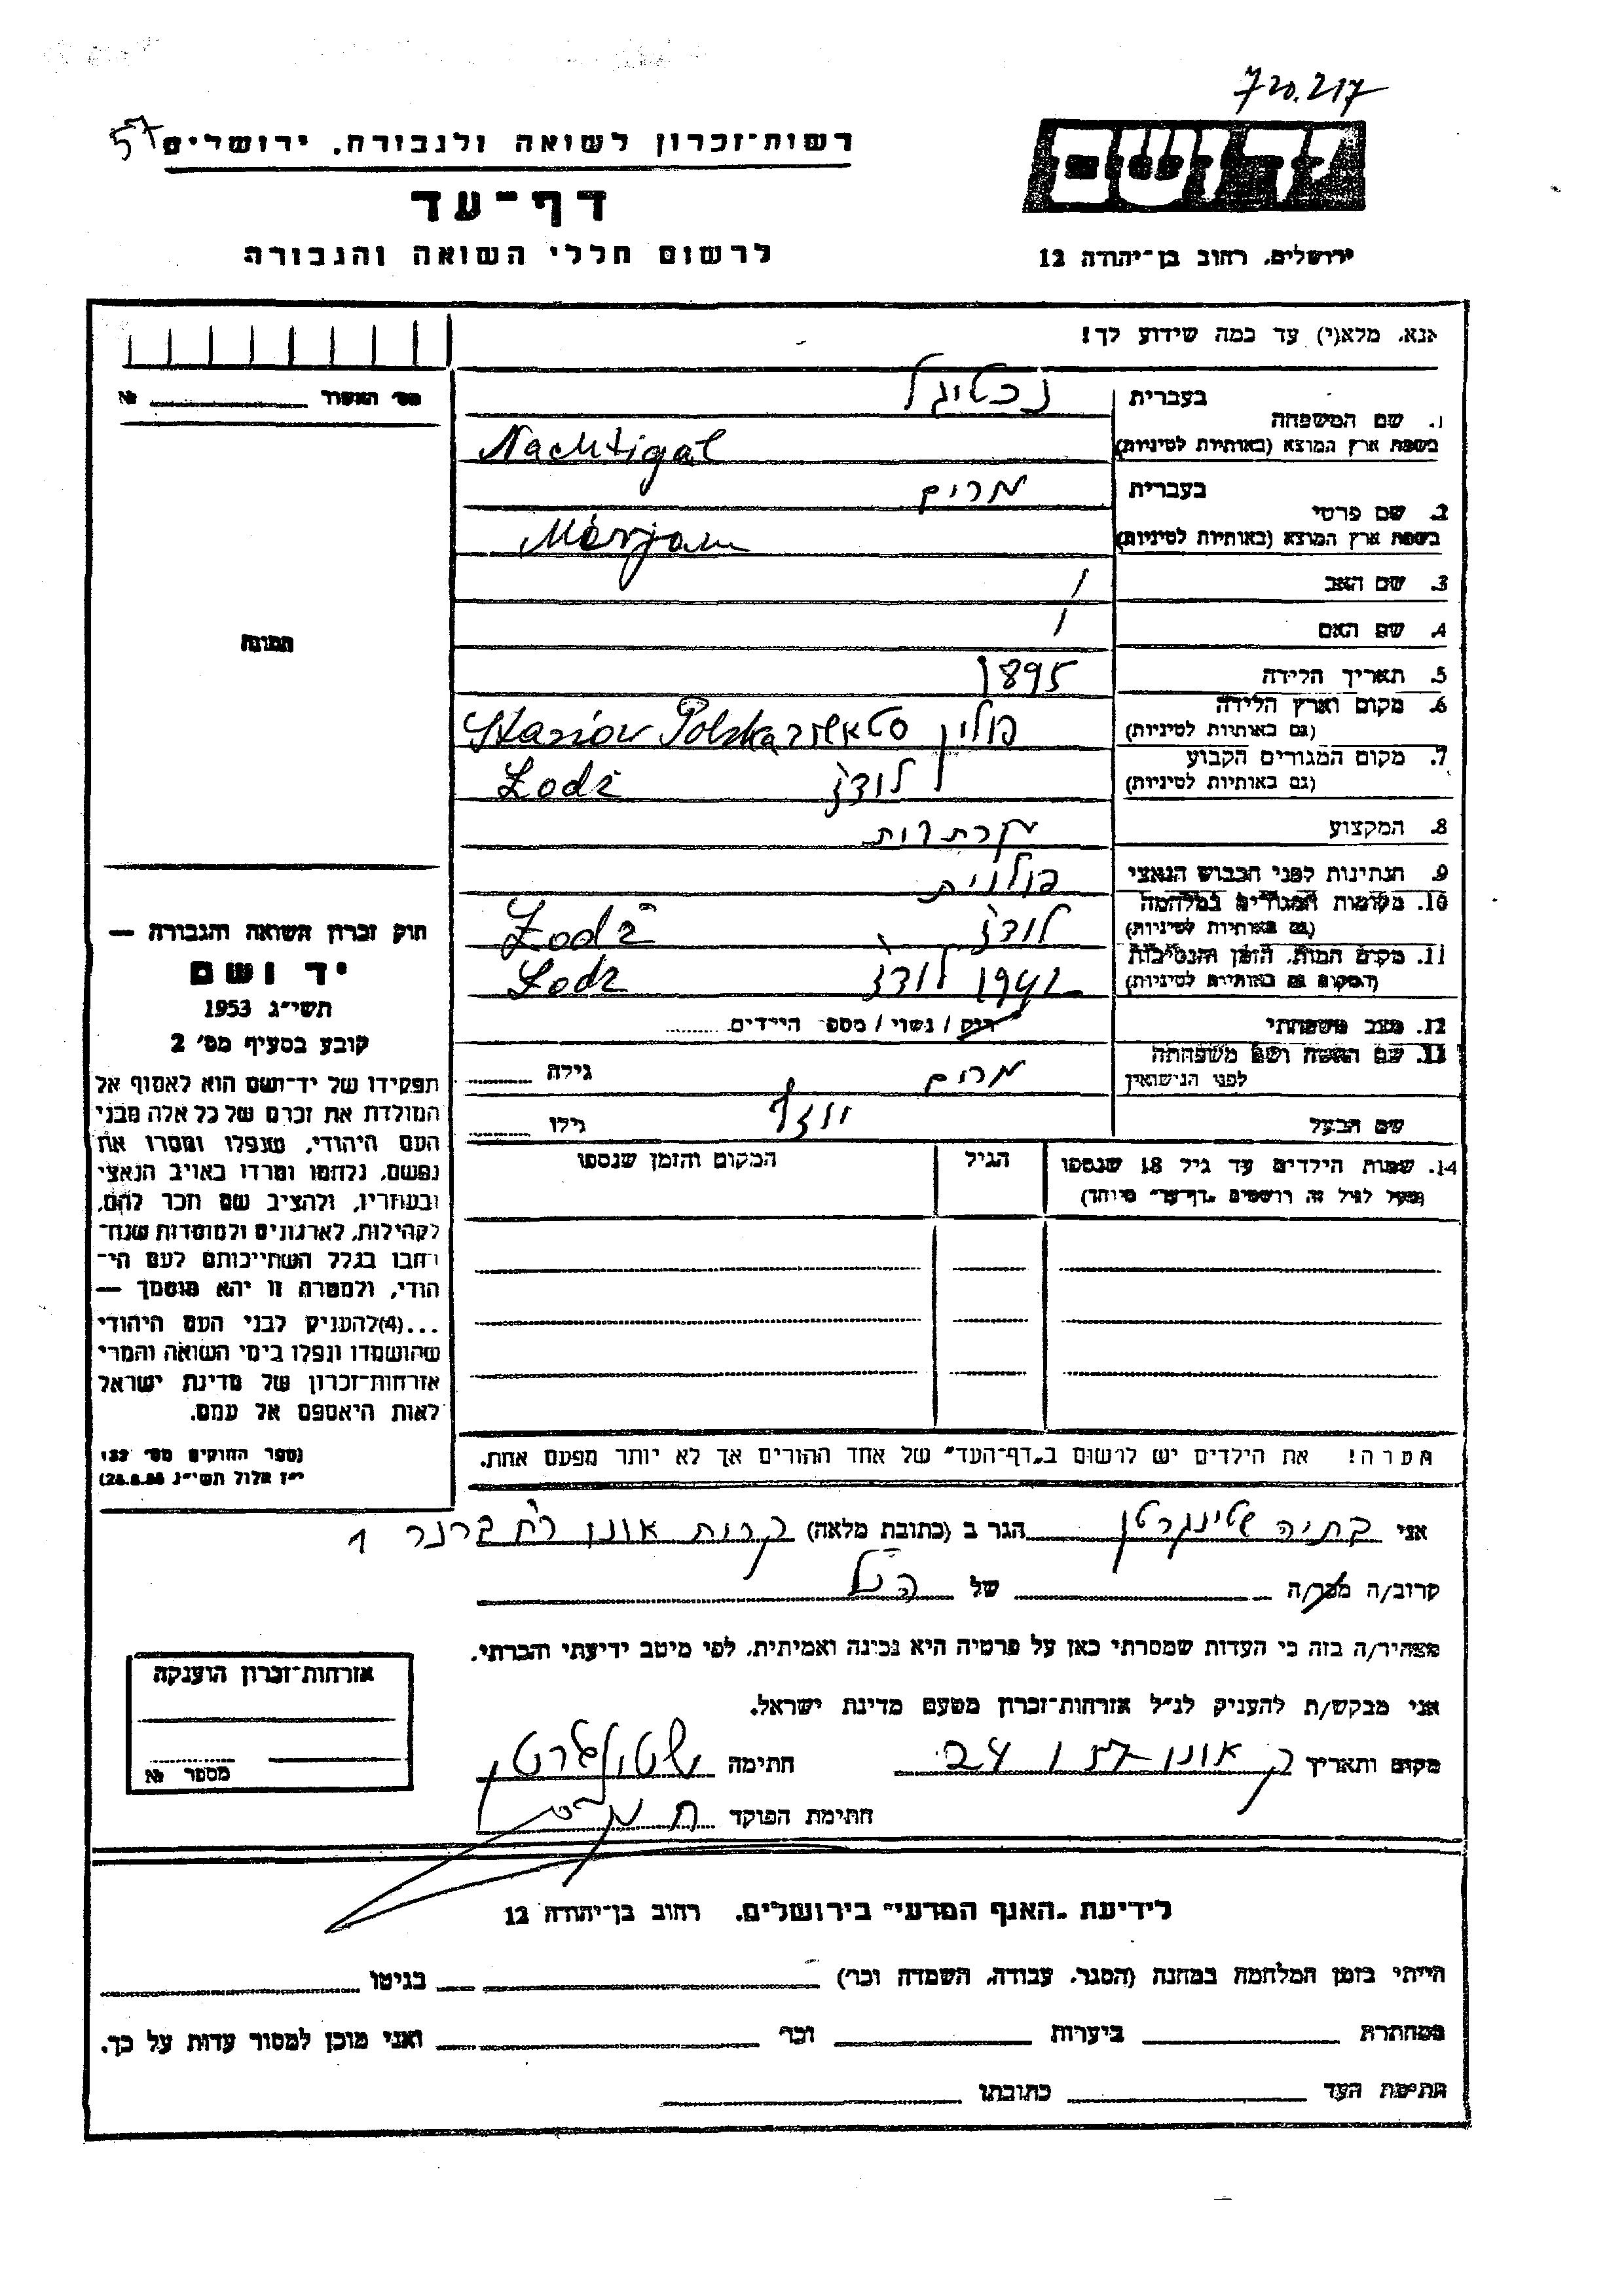 720.217
57
רשות־זכרון לשואה ולגבורה, ירושלים
יד ושם
דף־עד
לרשום חללי השואה והגבורה
ירושלים, רחוב בן־יהודה 12
אנא, מלא(י) עד כמה שידוע לך!
מס' האשרה № ______
1. שם המשפחה
בעברית נכטיגל
בשפת ארץ המוצא (באותיות לטיניות) Nachtigal
2. שם פרטי
בעברית מרים
בשפת ארץ המוצא (באותיות לטיניות)
3. שם האב /
4. שם האם /
5. תאריך הלידה 1895
6. מקום וארץ הלידה פולין Polska
(גם באותיות לטיניות)
7. מקום המגורים הקבוע לודז Łodź
(גם באותיות לטיניות)
8. המקצוע
9. הנתינות לפני הכבוש הנאצי פולנית
10. מקומות המגורים במלחמה לודז Łodź
(גם באותיות לטיניות)
11. מקום המות, הזמן והנסיבות 1941 לודז Łodź
(המקום גם באותיות לטיניות)
12. מצב משפחתי רוק / נשוי / מספר הילדים
13. שם האשה ושם משפחתה מרים גילה
לפני הנישואין
שם הבעל יוזף גילו
14. שמות הילדים עד גיל 18 שנספו הגיל המקום והזמן שנספו
(מעל לגיל זה רושמים „דף־עד" מיוחד)
תמונה
חוק זכרון השואה והגבורה —
יד ושם
תשי״ג 1953
קובע בסעיף מס' 2
תפקידו של יד־ושם הוא לאסוף אל
המולדת את זכרם של כל אלה מבני
העם היהודי, שנפלו ומסרו את
נפשם, נלחמו ומרדו באויב הנאצי
ובעוזריו, ולהציב שם וזכר להם,
לקהילות, לארגונים ולמוסדות שנח־
רבו בגלל השתייכותם לעם הי־
הודי, ולמטרה זו יהא מוסמך —
...(4)להעניק לבני העם היהודי
שהושמדו ונפלו בימי השואה והמרי
אזרחות־זכרון של מדינת ישראל
לאות היאספם אל עמם.
(ספר החוקים מס' 132
י״ז אלול תשי״ג
הערה! את הילדים יש לרשום ב„דף־העד" של אחד ההורים אך לא יותר מפעם אחת.
אני בתיה שטינגרטן הגר ב (כתובת מלאה) קרית אונו רח ברנר 1
קרוב/ה מכר/ה של הנ״ל
מצהיר/ה בזה כי העדות שמסרתי כאן על פרטיה היא נכונה ואמיתית, לפי מיטב ידיעתי והכרתי.
אני מבקש/ת להעניק לנ״ל אזרחות־זכרון מטעם מדינת ישראל.
מקום ותאריך ק אונו 24 1 57 חתימה שטינגרטן
חתימת הפוקד
אזרחות־זכרון הוענקה
מספר №
לידיעת „האגף המדעי" בירושלים, רחוב בן־יהודה 12
הייתי בזמן המלחמה במחנה (הסגר, עבודה, השמדה וכו') בגיטו
במחתרת ביערות וכו' ואני מוכן למסור עדות על כך.
חתימת העד כתובתו